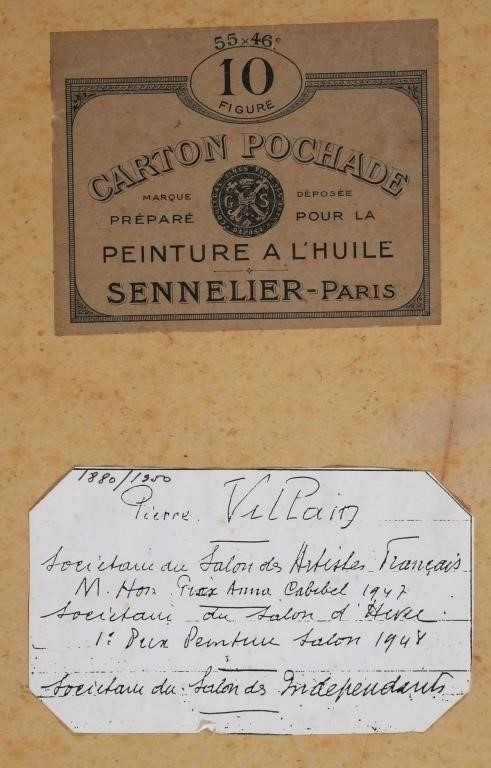 55 x 46 c
10
FIGURE
CARTON POCHADE
MARQUE DÉPOSÉE
G S
PRÉPARÉ POUR LA
PEINTURE A L'HUILE
SENNELIER-PARIS
1880/1950
Pierre. Villain
Societaire du Salon des Artistes Français
M. Hon Prix Anna Cabibel 1947
Societaire du Salon d'Hiver.
1e Prix Peinture Salon 1948
Societaire du Salon des Indépendants